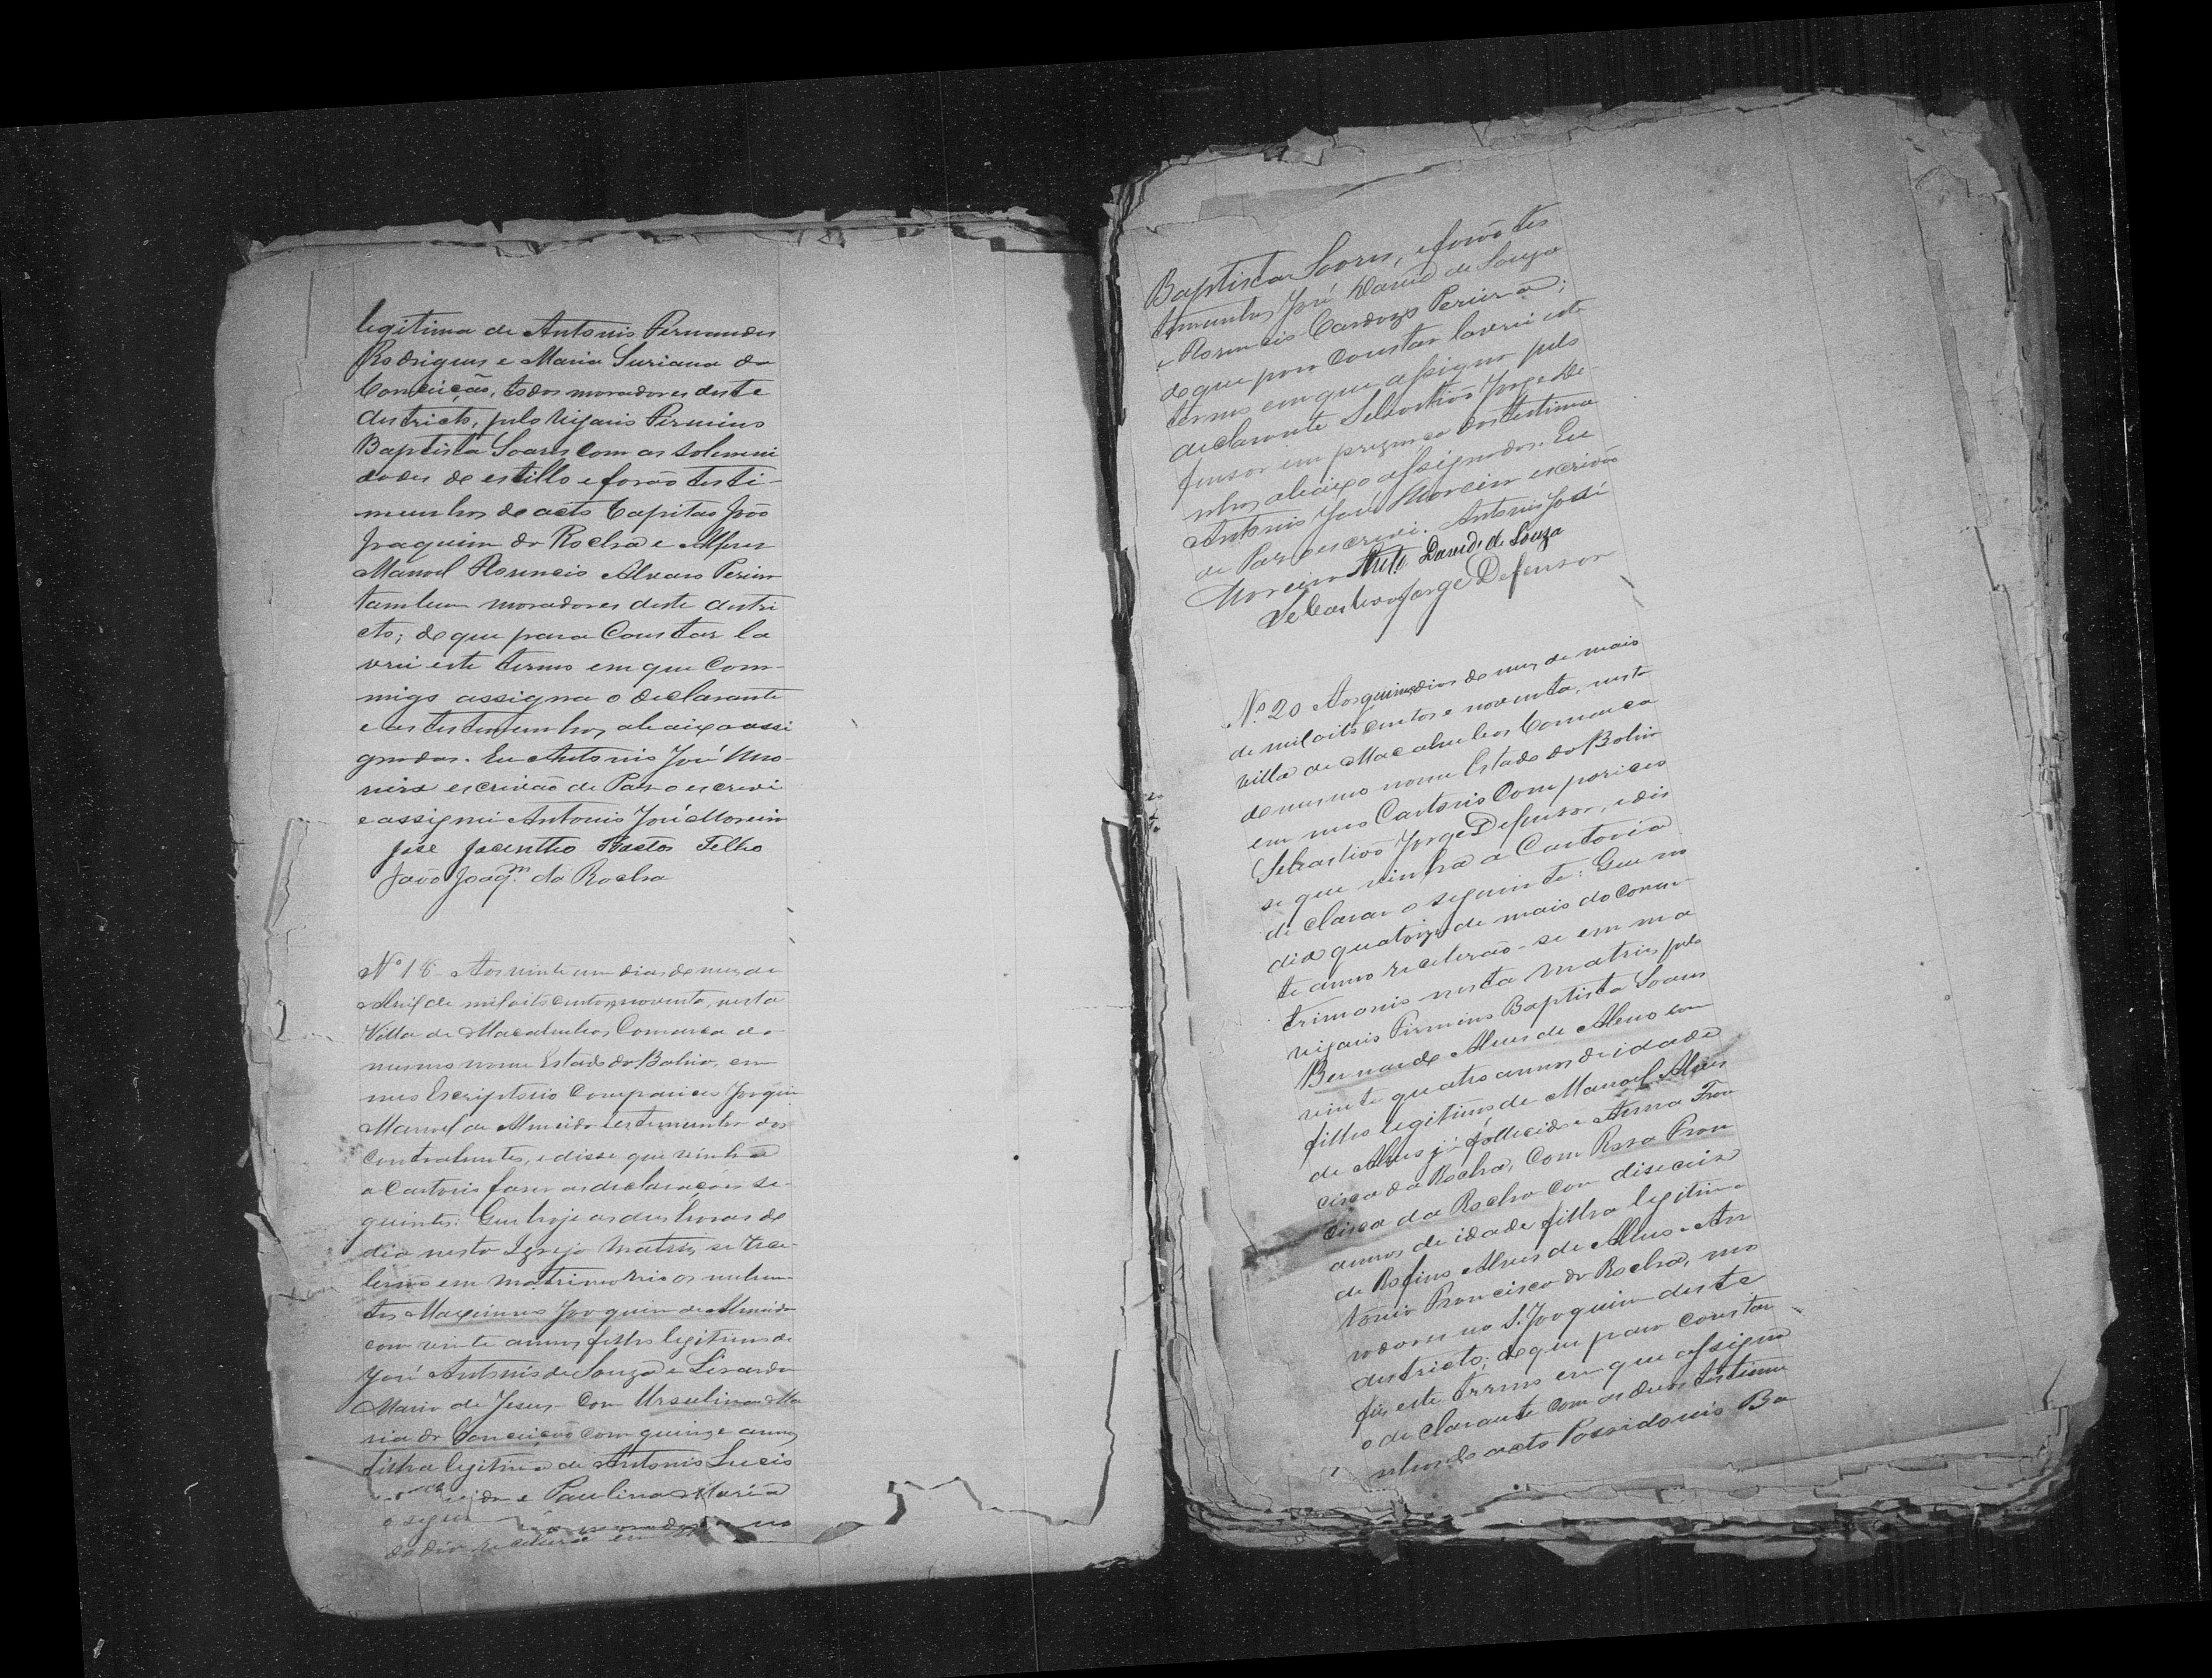 legitima de Antonio Fernandes
Rodrigues e Maria Suriana da
Conceição, todos moradores deste
districto, pelo Vigario Firmino
Baptista Soares com as solemni
dades de estillo e forão testi-
munhas do acto Capitão João
Joaquim da Rocha e Alferes
Manoel Florencio Alvares Pereira
tambem moradores deste distri
cto; do que para Constar la
vrei este termo em que Com-
migo assigna o declarante
e as testemunhas abaixo assi
gnadas. Eu Antonio José Mo-
reira escrivão de Paz o escrevi
e assignei Antonio José Moreira
José Jacintho Bastos Filho
João Joaqm. da Rocha
Nº 18 Aos vinte um dias do mez de
Abril de mil oito centos noventa, nesta
Villa de Macahubas, Comarca do
mesmo nome Estado da Bahia, em
meo Escriptorio Compareceu Joaquim
Manoel de Almeida testemunha dos
contrahentes, e disse que vinha
a Cartorio faser as declarações se-
guintes: Que hoje as duas horas do
dia nesta Igreja Matriz se rece-
berão em matrimonio os nuben-
tes Maximino Joaquim de Almeida
com vinte annos filho legitimo de
José Antonio de Souza e Lisarda
Maria de Jesus Com Ursulina Ma
ria da Conceição com quinze annos
filha legitima de Antonio Lucio
e Paulina Maria
o segui
do dia receberão em no
Baptista Soares, e forão tes
temunhas José David de Souza
e Florencio Cardozo Pereira;
do que para Constar lavrei este
termo em que assigna pelo
declarante Sebastião Jorge De-
fensor em prezença das testimu
nhas abaixo assignadas. Eu
Antonio José Moreira escrivão
de Paz o escrevi. Antonio José
Moreira Anto. David de Souza
Sebastião Jorge Defensor
Nº 20 Aos quinze dias do mez de maio
de mil oito centos e noventa, nesta
villa de Macahubas Comarca
do mesmo nome Estado da Bahia
em meo Cartorio Compareceo
Sebastião Jorge Defensor, e dis
se que vinha a Cartorio
declarar o seguinte: Que no
dia quatorze de maio do Corren-
te anno receberão-se em ma
trimonio nesta matriz pelo
vigario Firmino Baptista Soares
Bernardo Alves de Aleno com
vinte quatro annos de idade
filho legitimo de Manoel Alves
de Alves já fallecido e Anna Fran
cisca da Rocha, Com Rosa Fran
cisca da Rocha Com diseseis
annos de idade filha legitima
de Rofino Alves de Alves e An
tonia Francisca da Rocha, mo
radores no S. Joaquim deste
districto; do que para constar
fiz este termo em que assigna
o declarante com as duas testimu
nhas do acto Possidonio Ba